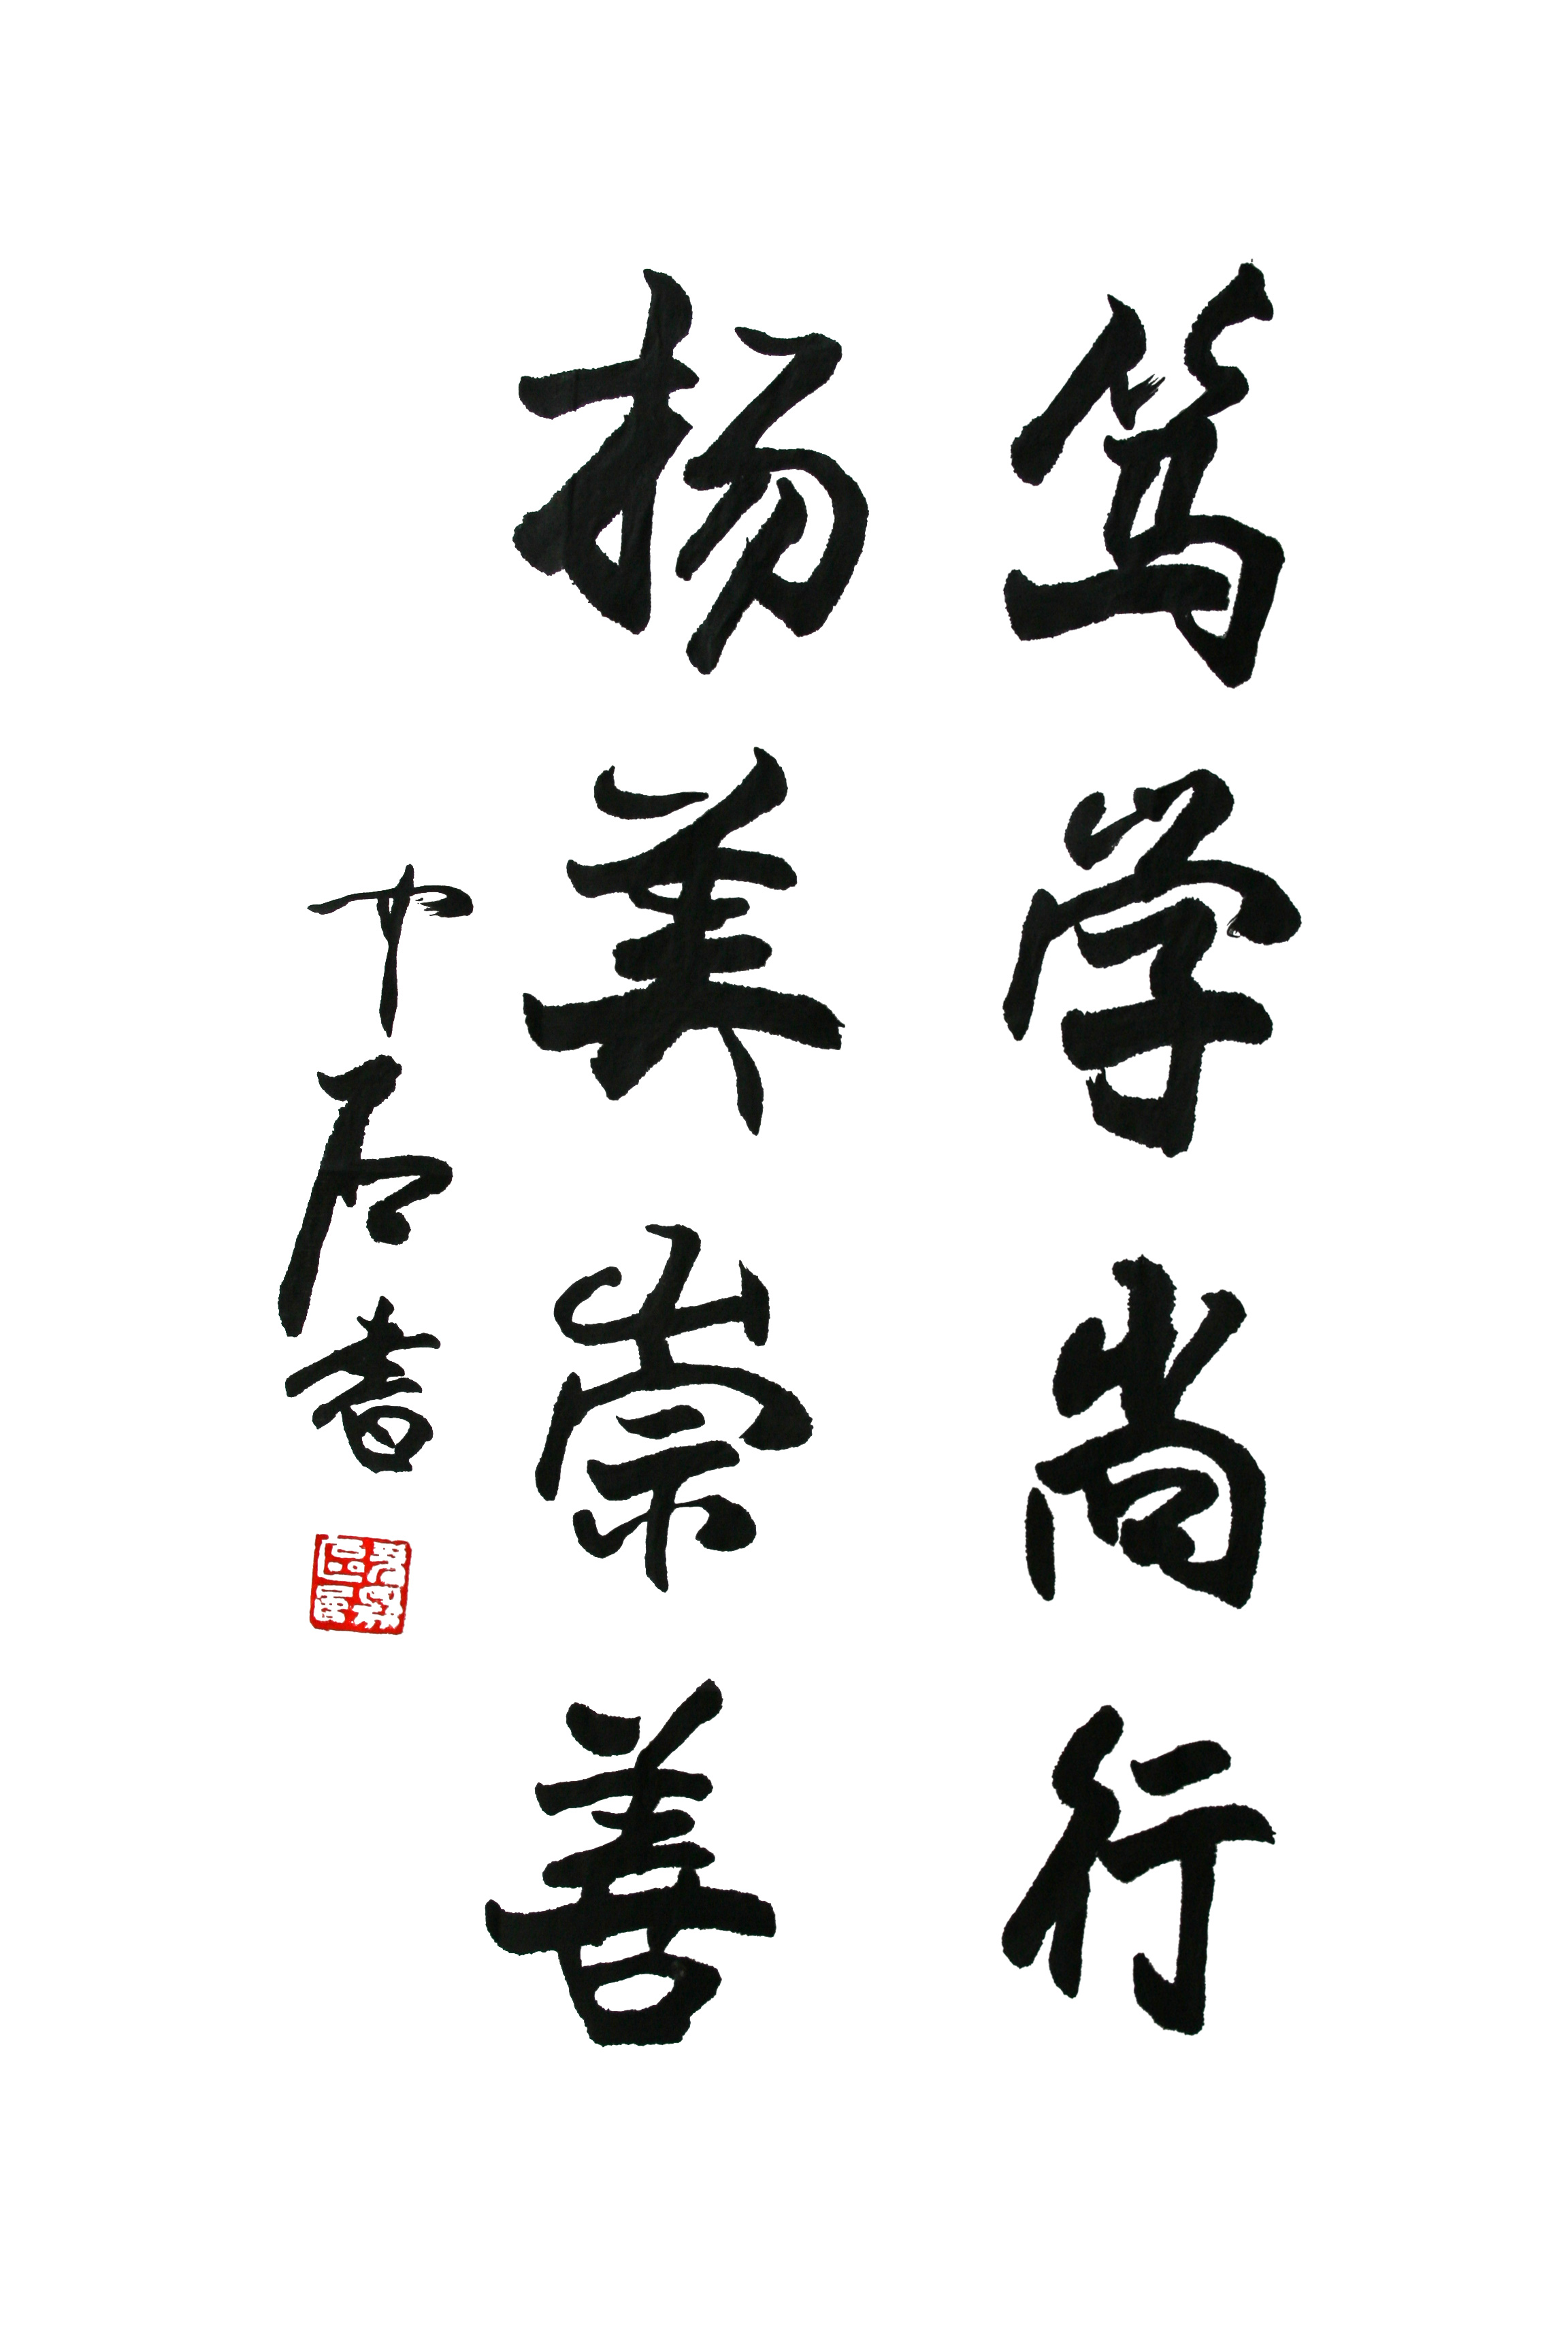 笃学尚行
扬美崇善
十石书